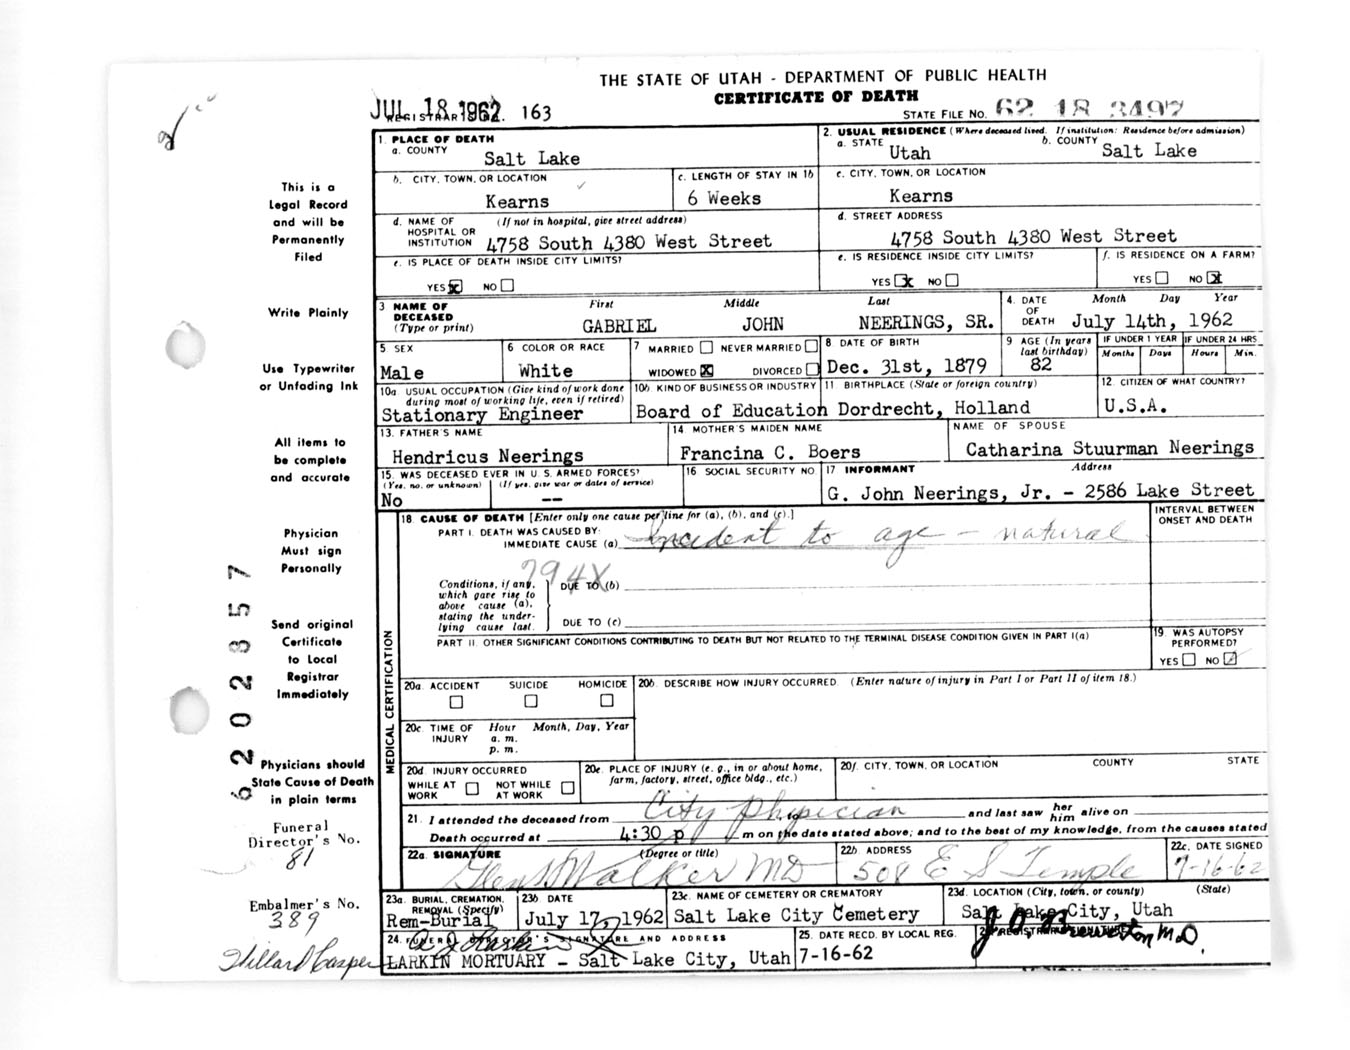 THE STATE OF UTAH - DEPARTMENT OF PUBLIC HEALTH
CERTIFICATE OF DEATH
JUL 18 1962
REGISTRAR 163
STATE FILE NO. 62 18 3497
This is a
Legal Record
and will be
Permanently
Filed
Write Plainly
Use Typewriter
or Unfading Ink
All items to
be complete
and accurate
Physician
Must sign
Personally
Send original
Certificate
to Local
Registrar
Immediately
Physicians should
State Cause of Death
in plain terms
Funeral
Director's No.
81
Embalmer's No.
389
Willard Casper
6202857
1. PLACE OF DEATH
a. COUNTY
Salt Lake
2. USUAL RESIDENCE (Where deceased lived. If institution: Residence before admission)
a. STATE Utah b. COUNTY Salt Lake
b. CITY, TOWN, OR LOCATION
Kearns
c. LENGTH OF STAY IN 1b
6 Weeks
c. CITY, TOWN, OR LOCATION
Kearns
d. NAME OF (If not in hospital, give street address)
HOSPITAL OR
INSTITUTION 4758 South 4380 West Street
d. STREET ADDRESS
4758 South 4380 West Street
e. IS PLACE OF DEATH INSIDE CITY LIMITS?
YES x NO
e. IS RESIDENCE INSIDE CITY LIMITS?
YES x NO
f. IS RESIDENCE ON A FARM?
YES NO x
3 NAME OF
DECEASED
(Type or print)
First Middle Last
GABRIEL JOHN NEERINGS, SR.
4. DATE
OF
DEATH
Month Day Year
July 14th, 1962
5 SEX
Male
6 COLOR OR RACE
White
7 MARRIED NEVER MARRIED
WIDOWED X DIVORCED
8 DATE OF BIRTH
Dec. 31st, 1879
9 AGE (In years
last birthday)
82
IF UNDER 1 YEAR
Months Days
IF UNDER 24 HRS
Hours Min.
10a. USUAL OCCUPATION (Give kind of work done
during most of working life, even if retired)
Stationary Engineer
10b. KIND OF BUSINESS OR INDUSTRY
Board of Education
11 BIRTHPLACE (State or foreign country)
Dordrecht, Holland
12. CITIZEN OF WHAT COUNTRY?
U.S.A.
13. FATHER'S NAME
Hendricus Neerings
14 MOTHER'S MAIDEN NAME
Francina C. Boers
NAME OF SPOUSE
Catharina Stuurman Neerings
15. WAS DECEASED EVER IN U. S. ARMED FORCES?
(Yes, no, or unknown) (If yes, give war or dates of service)
No --
16 SOCIAL SECURITY NO
17 INFORMANT Address
G. John Neerings, Jr. - 2586 Lake Street
MEDICAL CERTIFICATION
18. CAUSE OF DEATH [Enter only one cause per line for (a), (b), and (c).]
INTERVAL BETWEEN
ONSET AND DEATH
PART I. DEATH WAS CAUSED BY:
IMMEDIATE CAUSE (a) Incident to age - natural
794X
Conditions, if any,
which gave rise to
above cause (a),
stating the under-
lying cause last.
DUE TO (b)
DUE TO (c)
PART II. OTHER SIGNIFICANT CONDITIONS CONTRIBUTING TO DEATH BUT NOT RELATED TO THE TERMINAL DISEASE CONDITION GIVEN IN PART I(a)
19. WAS AUTOPSY
PERFORMED?
YES NO
20a. ACCIDENT SUICIDE HOMICIDE
20b. DESCRIBE HOW INJURY OCCURRED. (Enter nature of injury in Part I or Part II of item 18.)
20c. TIME OF
INJURY
Hour Month, Day, Year
a. m.
p. m.
20d. INJURY OCCURRED
WHILE AT
WORK
NOT WHILE
AT WORK
20e. PLACE OF INJURY (e. g., in or about home,
farm, factory, street, office bldg., etc.)
20f. CITY, TOWN, OR LOCATION COUNTY STATE
21. I attended the deceased from City Physician and last saw her him alive on
Death occurred at 4:30 p m on the date stated above; and to the best of my knowledge, from the causes stated
22a. SIGNATURE (Degree or title)
Glen Walker MD
22b. ADDRESS
508 E S Temple
22c. DATE SIGNED
7-16-62
23a. BURIAL, CREMATION,
REMOVAL (Specify)
Rem-Burial
23b. DATE
July 17, 1962
23c. NAME OF CEMETERY OR CREMATORY
Salt Lake City Cemetery
23d. LOCATION (City, town, or county) (State)
Salt Lake City, Utah
24. FUNERAL DIRECTOR'S SIGNATURE AND ADDRESS
LARKIN MORTUARY - Salt Lake City, Utah
25. DATE RECD. BY LOCAL REG.
7-16-62
REGISTRAR'S SIGNATURE